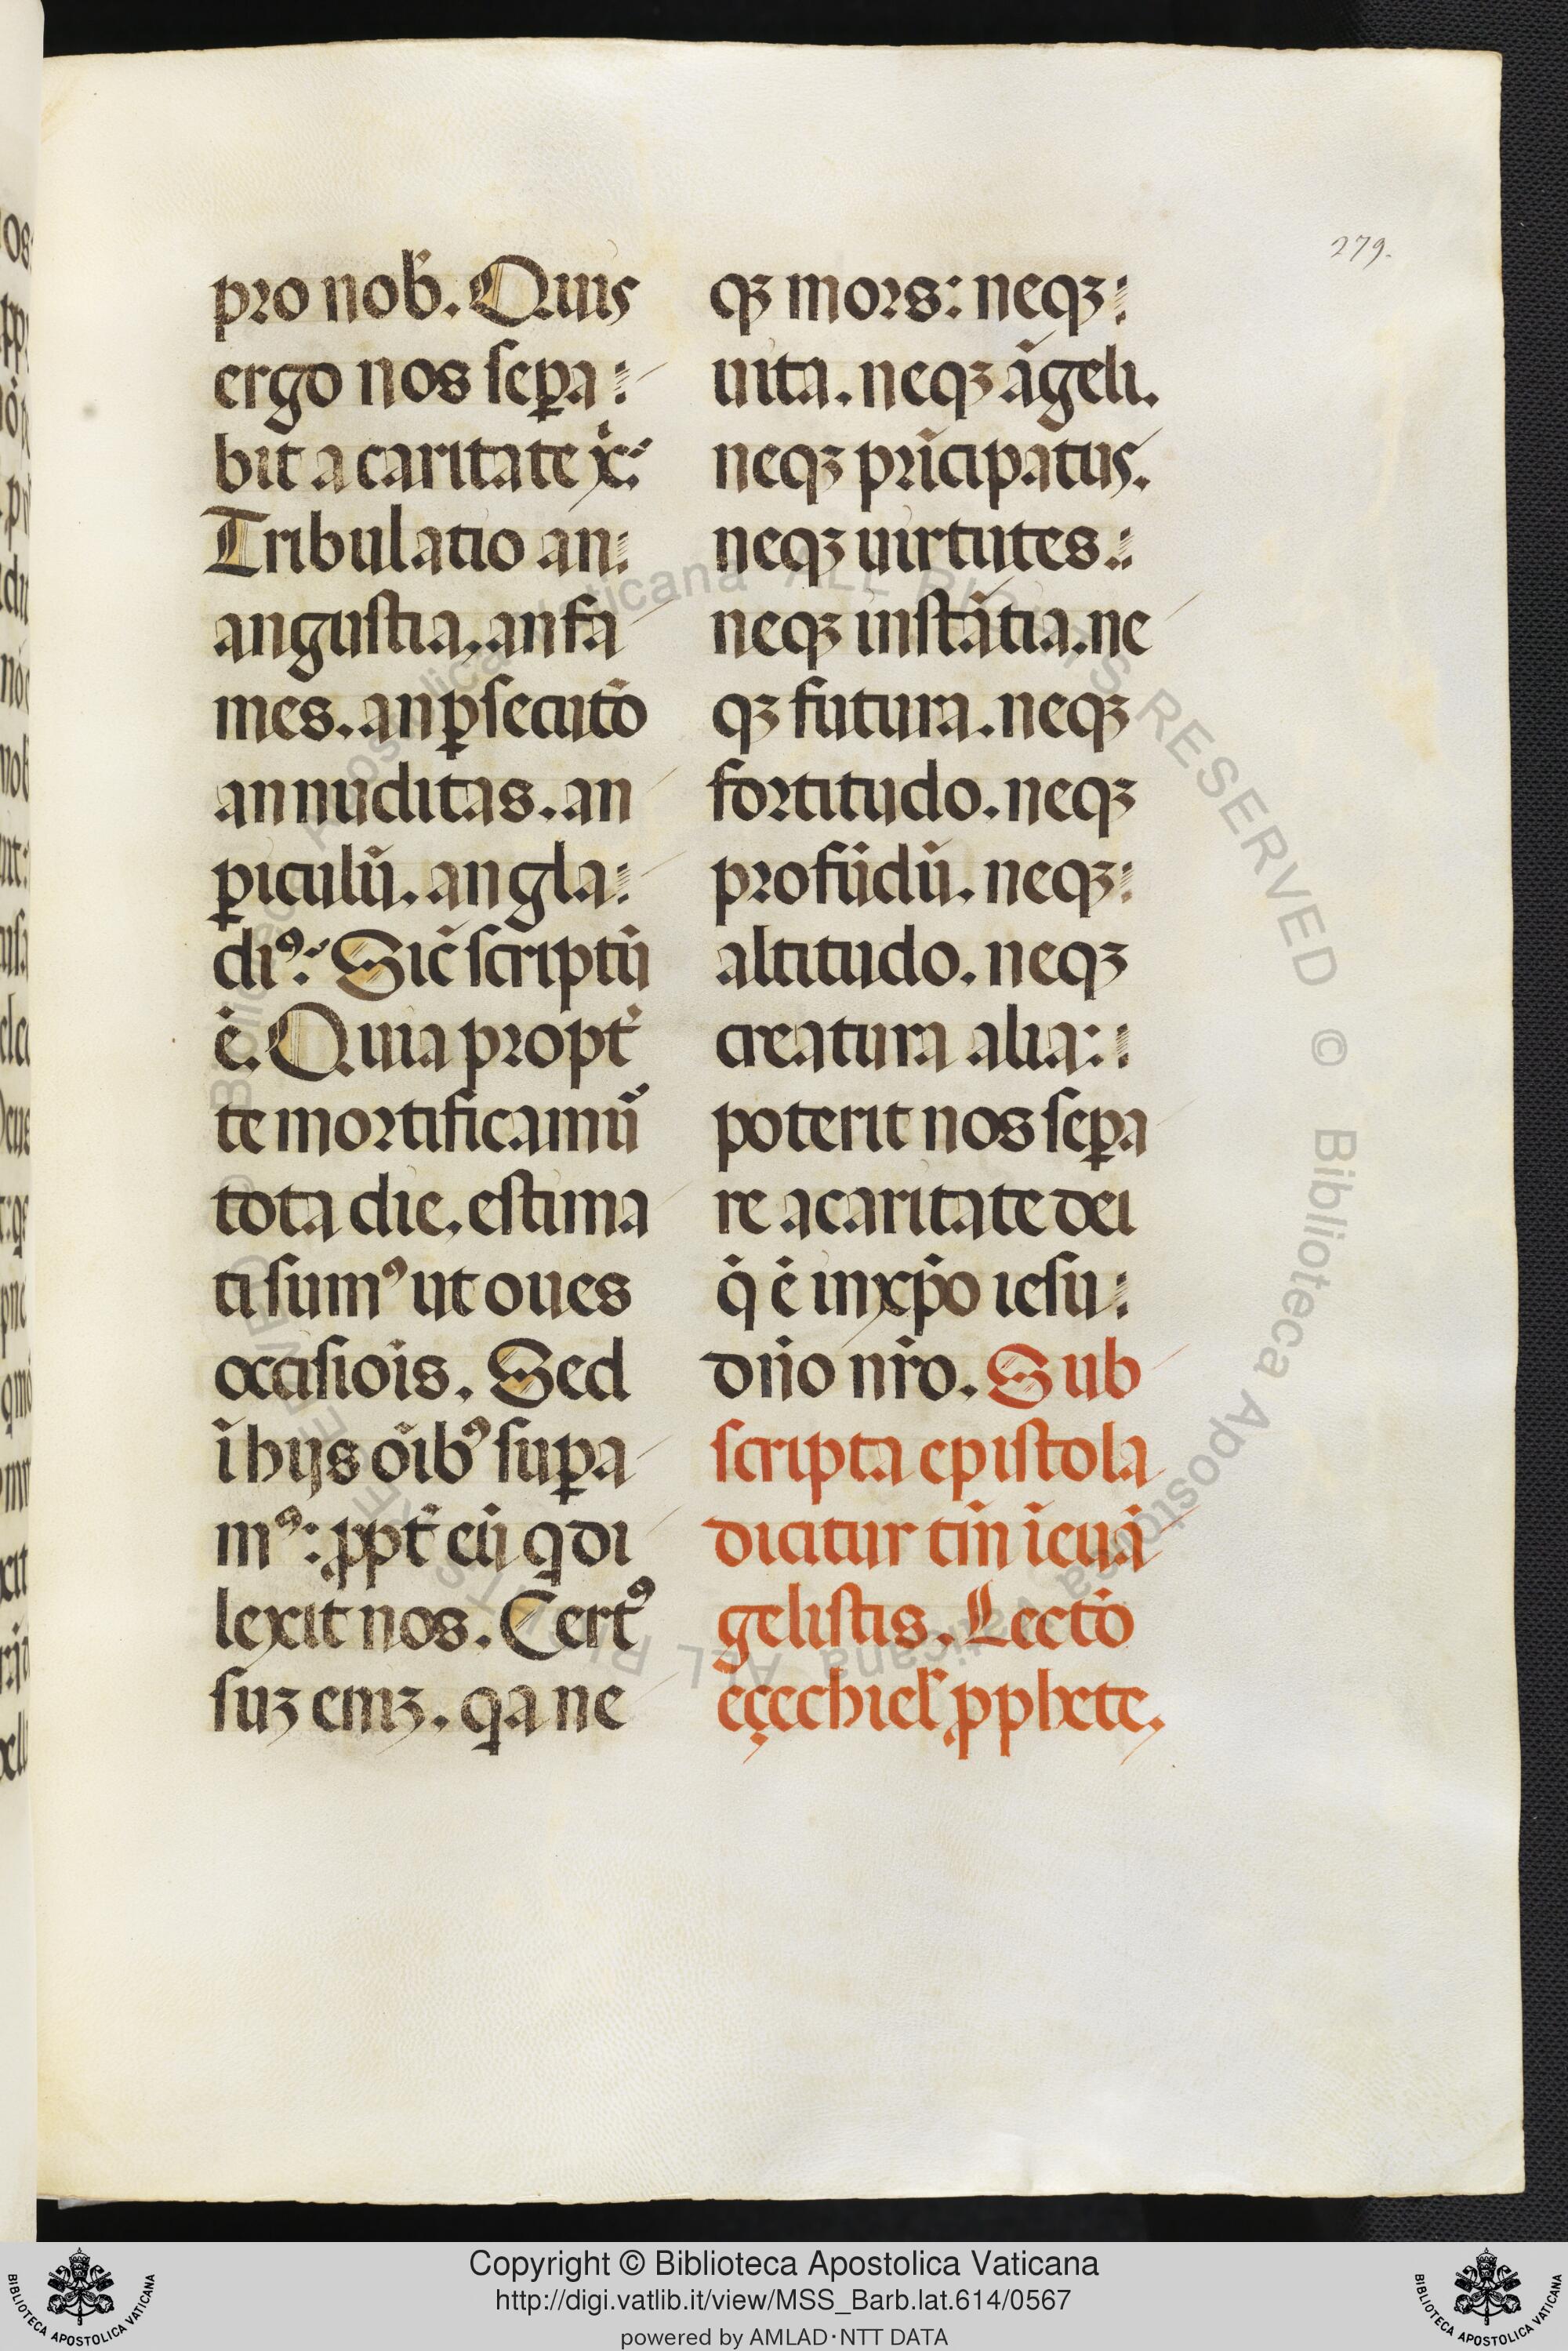 279.
pro nob̄. Quis
ergo nos ſeꝑa
bit a caritate x̄.
Tribulatio an
anguſtia. an fa
mes. an ꝑſecutō
an nuditas. an
ꝑiculū. an gla
diꝰ: Sic̄ ſcriptū
ē. Quia propt̄
te mortificamū
tota die. eſtima
ti ſumꝰ ut oues
occiſiōis. Sed
ī hijs oībꝰ ſuꝑa
mꝰ: ꝓpt̄ eū q di
lexit nos. Certꝰ
ſuꝫ eniꝫ. qa ne
qꝫ mors: neqꝫ
uita. neqꝫ āgeli.
neqꝫ prīcipatus.
neqꝫ uirtutes.
neqꝫ inſtātia. ne
qꝫ futura. neqꝫ
fortitudo. neqꝫ
profūdū. neqꝫ
altitudo. neqꝫ
creatura alia:
poterit nos ſeꝑa
re a caritate dei
q̄ ē in xp̄o ieſu
dn̄o nr̄o. Sub
ſcripta epiſtola
dicitur tm̄ ī euā
geliſtis. Lectō
eçechiel̄ ꝓphete.
Copyright © Biblioteca Apostolica Vaticana
http://digi.vatlib.it/view/MSS_Barb.lat.614/0567
powered by AMLAD·NTT DATA
BIBLIOTECA APOSTOLICA VATICANA
BIBLIOTECA APOSTOLICA VATICANA